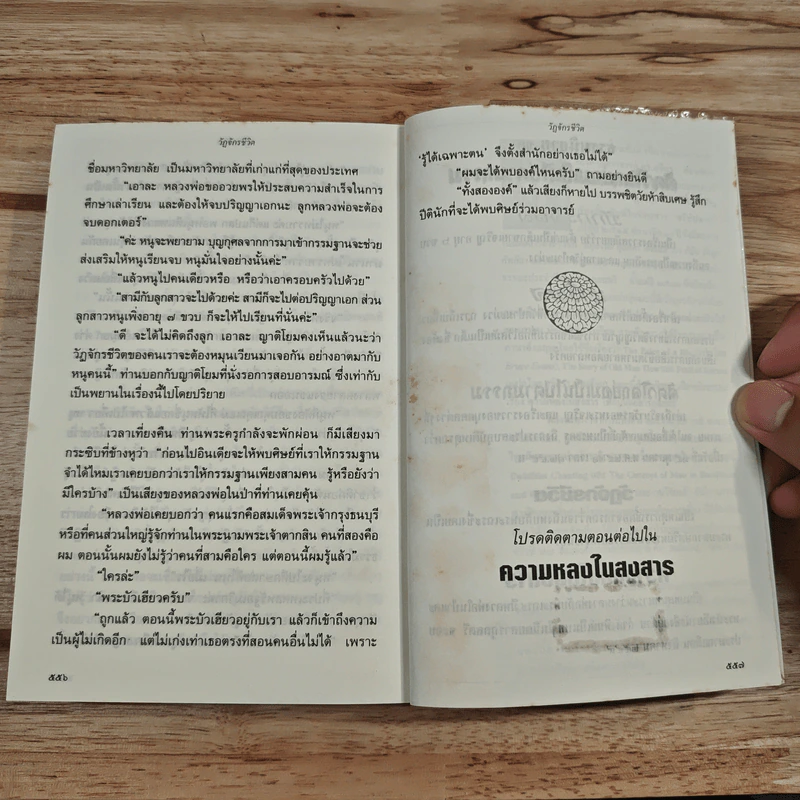 วัฏจักรชีวิต
ชื่อมหาวิทยาลัย เป็นมหาวิทยาลัยที่เก่าแก่ที่สุดของประเทศ
“เอาละ หลวงพ่อขออวยพรให้ประสบความสำเร็จในการ
ศึกษาเล่าเรียน และต้องให้จบปริญญาเอกนะ ลูกหลวงพ่อจะต้อง
จบดอกเตอร์”
“ค่ะ หนูจะพยายาม บุญกุศลจากการมาเข้ากรรมฐานจะช่วย
ส่งเสริมให้หนูเรียนจบ หนูมั่นใจอย่างนั้นค่ะ”
“แล้วหนูไปคนเดียวหรือ หรือว่าเอาครอบครัวไปด้วย”
“สามีกับลูกสาวจะไปด้วยค่ะ สามีก็จะไปต่อปริญญาเอก ส่วน
ลูกสาวหนูเพิ่งอายุ ๗ ขวบ ก็จะให้ไปเรียนที่นั่นค่ะ”
“ดี จะได้ไม่คิดถึงลูก เอาละ ญาติโยมคงเห็นแล้วนะว่า
วัฏจักรชีวิตของคนเราจะต้องหมุนเวียนมาเจอกัน อย่างอาตมากับ
หนูคนนี้” ท่านบอกกับญาติโยมที่นั่งรอการสอบอารมณ์ ซึ่งเท่ากับ
เป็นพยานในเรื่องนี้ไปโดยปริยาย
เวลาเที่ยงคืน ท่านพระครูกำลังจะพักผ่อน ก็มีเสียงมา
กระซิบที่ข้างหูว่า “ก่อนไปอินเดียจะให้พบศิษย์ที่เราให้กรรมฐาน
จำได้ไหมเราเคยบอกว่าเราให้กรรมฐานเพียงสามคน รู้หรือยังว่า
มีใครบ้าง” เป็นเสียงของหลวงพ่อในป่าที่ท่านเคยคุ้น
“หลวงพ่อเคยบอกว่า คนแรกคือสมเด็จพระเจ้ากรุงธนบุรี
หรือที่คนส่วนใหญ่รู้จักท่านในพระนามพระเจ้าตากสิน คนที่สองคือ
ผม ตอนนั้นผมยังไม่รู้ว่าคนที่สามคือใคร แต่ตอนนี้ผมรู้แล้ว”
“ใครล่ะ”
“พระบัวเฮียวครับ”
“ถูกแล้ว ตอนนี้พระบัวเฮียวอยู่กับเรา แล้วก็เข้าถึงความ
เป็นผู้ไม่เกิดอีก แต่ไม่เก่งเท่าเธอตรงที่สอนคนอื่นไม่ได้ เพราะ
๕๕๖
วัฏจักรชีวิต
‘รู้ได้เฉพาะตน’ จึงตั้งสำนักอย่างเธอไม่ได้”
“ผมจะได้พบองค์ไหนครับ” ถามอย่างยินดี
“ทั้งสององค์” แล้วเสียงก็หายไป บรรพชิตวัยห้าสิบเศษ รู้สึก
ปีตินักที่จะได้พบศิษย์ร่วมอาจารย์
โปรดติดตามตอนต่อไปใน
ความหลงในสงสาร
๕๕๗